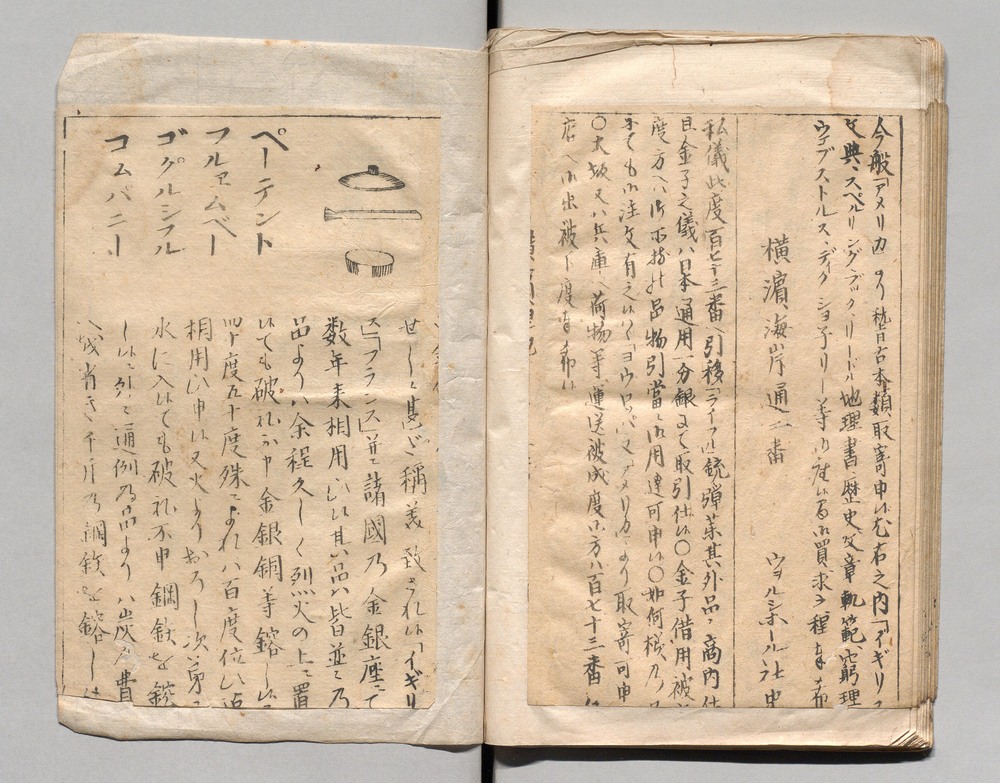 今般「アメリカ」より
書籍類取寄申候尤右之内「イギリス
文典スペルリングブックリードル地理書歴史文章軌範窮理
ウヲブストルスディクショ子リー等御座候間御買求之程奉希
横濱海岸通二番
ウヲルシホール社中
私儀此度百七十三番へ引移「ライフル」銃弾薬其外品々商内仕
且金子之儀ハ日本通用一分銀にて取引仕候〇金子借用被
度方ハ御所持の品物引當に御用達可申候〇如何様乃
にても御注文有之候ハヽヨウロパ又アメリカより取寄可申
〇大坂又ハ兵庫へ荷物等運送被成度御方ハ百七十三番
店へ御出被下度奉希候
ペーテント
フルヱムベー
ゴグルシフル
コムパニー
せしに甚だ称美致され候「イギリ
ス」「フランス」并に諸國乃金銀座にて
数年来相用ひ候其品ハ皆並乃
品よりハ余程久しく烈火の上に置
候ても破れ不申金銀銅等鎔し候
四十度五十度殊により八百度位ハ
相用ひ申候又火よりおろし次第
水に入候ても破れ不申鋼鉄を鎔
し候に別て通例乃品よりハ炭乃費
八減省き千斤乃鋼鉄を鎔し